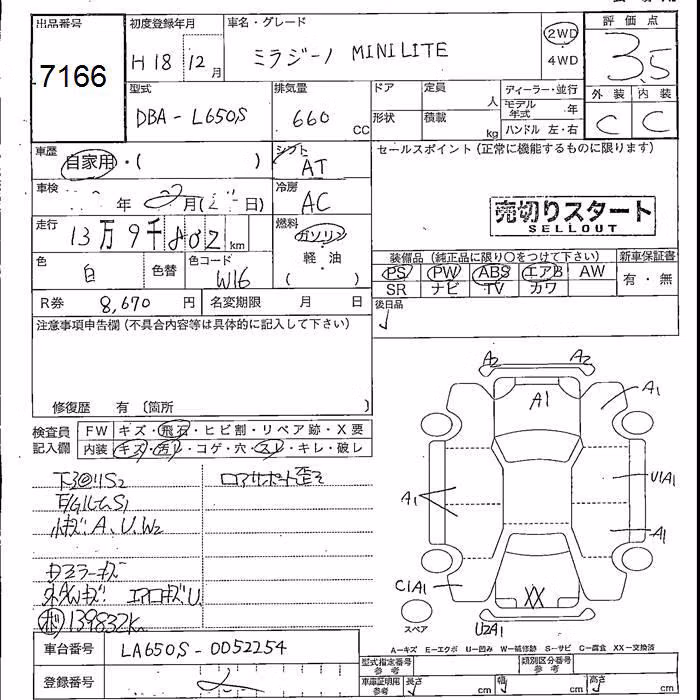 出品番号
7166
初度登録年月
H 18 12月
車名・グレード
ミラジーノ MINILITE
2WD
4WD
評価点
3.5
外装 内装
C C
型式
DBA-L650S
排気量
660 CC
ドア
形状
定員 人
積載 kg
ディーラー・並行
モデル年式 年
ハンドル 左・右
車歴
自家用・( )
シフト
AT
セールスポイント(正常に機能するものに限ります)
車検
年 月( 日)
冷房
AC
売切りスタート
SELLOUT
走行
13万9千802km
燃料
ガソリン
軽・油
( )
色
白
色替
色コード
W16
装備品(純正品に限り○をつけて下さい)
新車保証書
PS PW ABS エアB AW
SR ナビ TV カワ
有・無
R券 8,670円
名変期限 月 日
後日品
注意事項申告欄(不具合内容等は具体的に記入して下さい)
修復歴 有〔箇所 〕
検査員記入欄
FW キズ・飛石・ヒビ割・リペア跡・X要
内装 キズ・汚レ・コゲ・穴・スレ・キレ・破レ
下3@リS2
ロアサポート歪ミ
E/GルームS1
小キズA、U、W2
ドアミラーキズ
139832K
車台番号 LA650S-0052254
登録番号
A2 A2
A1
A1
A1
U1A1
A1
C1A1
XX
U2A1
スペア
A=キズ E=エクボ U=凹み W=補修跡 S=サビ C=腐食 XX=交換済
型式指定番号 参考
類別区分番号 参考
車庫証明用 参考
長さ cm
幅 cm
高さ cm